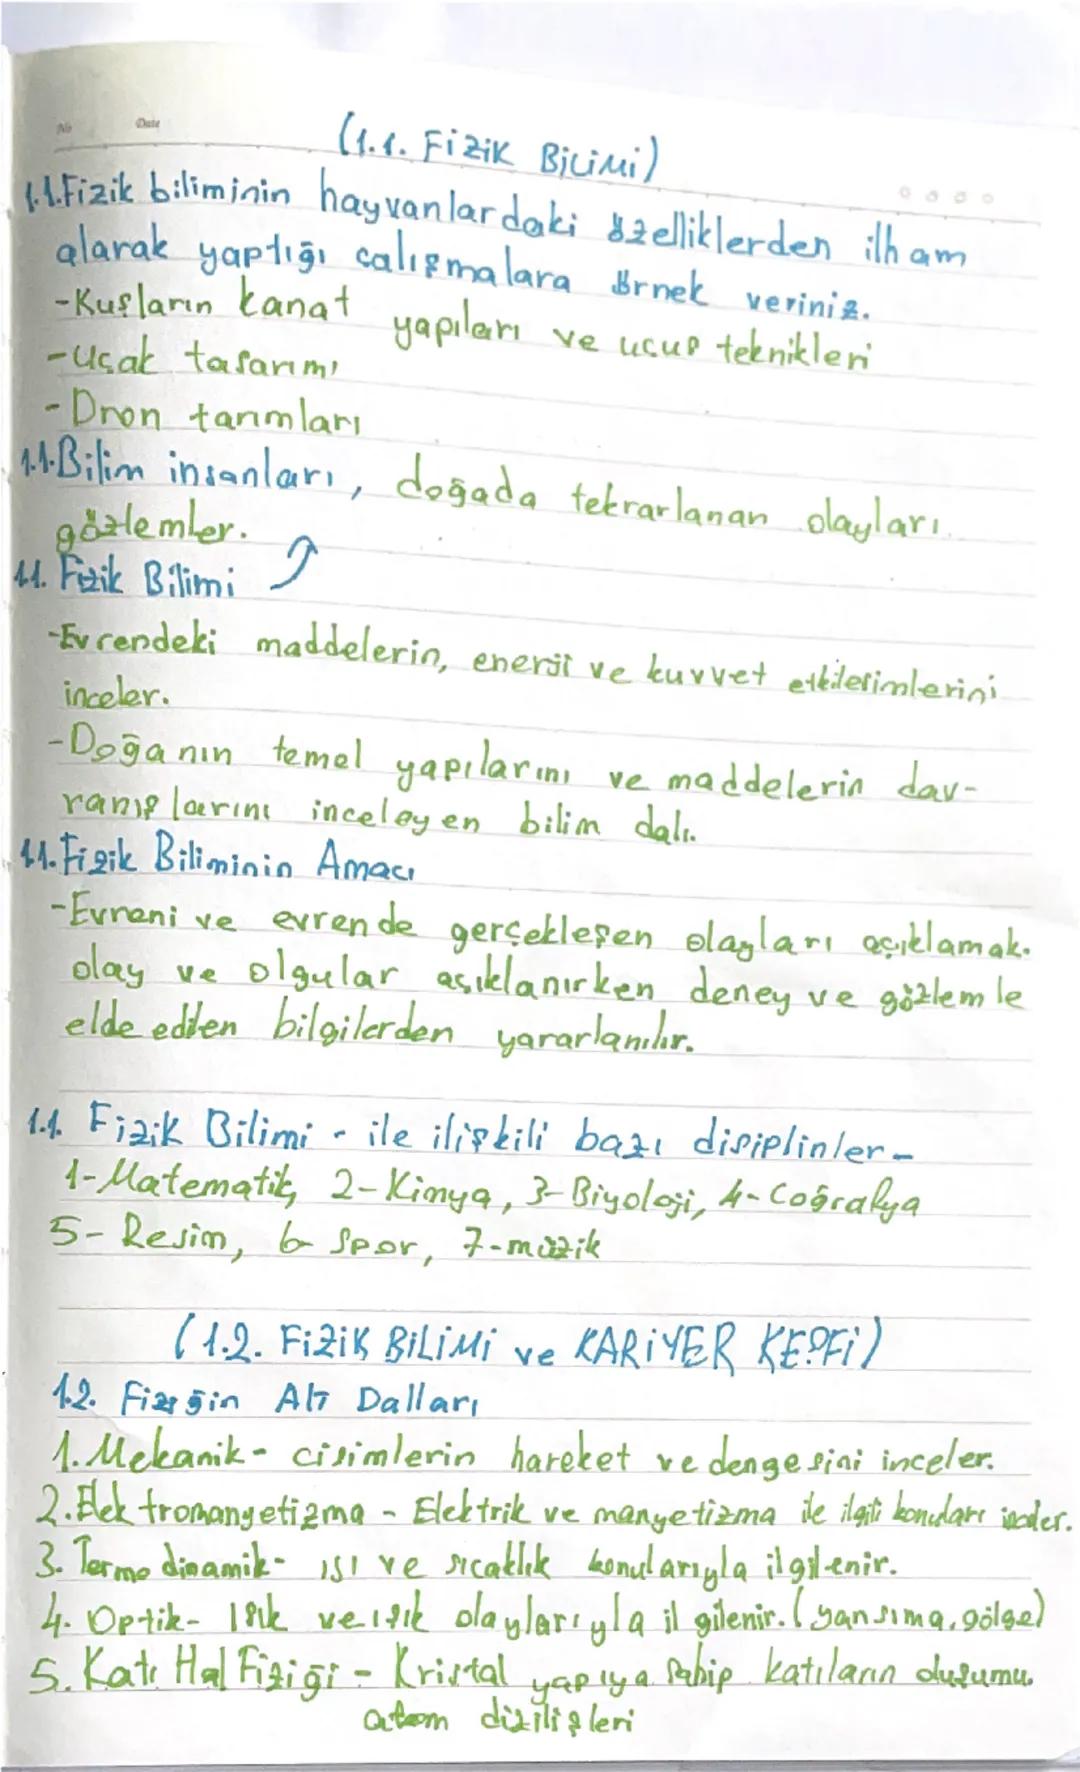 No Date
(1.1. FiZiK BiLiMi)
1.1.Fizik biliminin hayvanlardaki özelliklerden ilham
alarak yaptığı çalışmalara örnek veriniz.
-Kuşların kanat yapıları ve uçuş teknikleri
-Uçak tasarımı
-Dron tarımları
1.1.Bilim insanları, doğada tekrarlanan olayları
gözlemler.
1.1. Fizik Bilimi
-Evrendeki maddelerin, enerji ve kuvvet etkileşimlerini
inceler.
-Doğanın temel yapılarını ve maddelerin dav-
ranışlarını inceleyen bilim dalı.
1.1.Fizik Biliminin Amacı
-Evreni ve evrende gerçekleşen olayları açıklamak.
olay ve olgular açıklanırken deney ve gözlemle
elde edilen bilgilerden yararlanılır.
1.1. Fizik Bilimi - ile ilişkili bazı disiplinler-
1-Matematik, 2-Kimya, 3-Biyoloji, 4-Coğrafya
5-Resim, 6-Spor, 7-müzik
(1.2. FiZiK BiLiMi ve KARiYER KEŞFi)
1.2. Fiziğin Alt Dalları
1.Mekanik- cisimlerin hareket ve dengesini inceler.
2.Elektromanyetizma - Elektrik ve manyetizma ile ilgili konuları inceler.
3. Termodinamik- ısı ve sıcaklık konularıyla ilgilenir.
4. Optik- Işık ve ışık olaylarıyla ilgilenir. (yansıma, gölge)
5. Katı Hal Fiziği - Kristal yapıya sahip katıların durumu.
atom dizilişleri